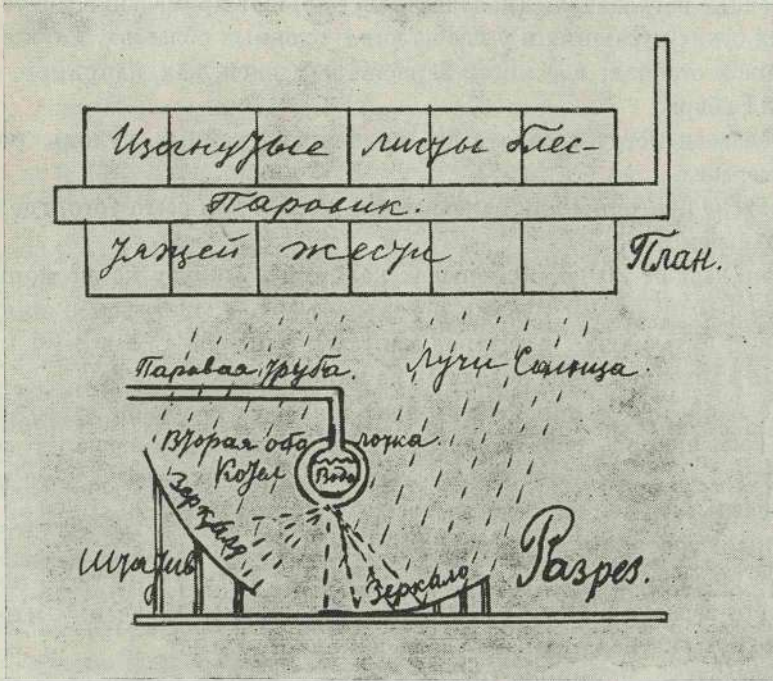 Изогнутые листы блес-
Паровик.
тящей жести
План.
Паровая труба.
Лучи Солнца.
Вторая оболочка.
Котел
Вода
Зеркало
Штатив
Зеркало
Разрез.